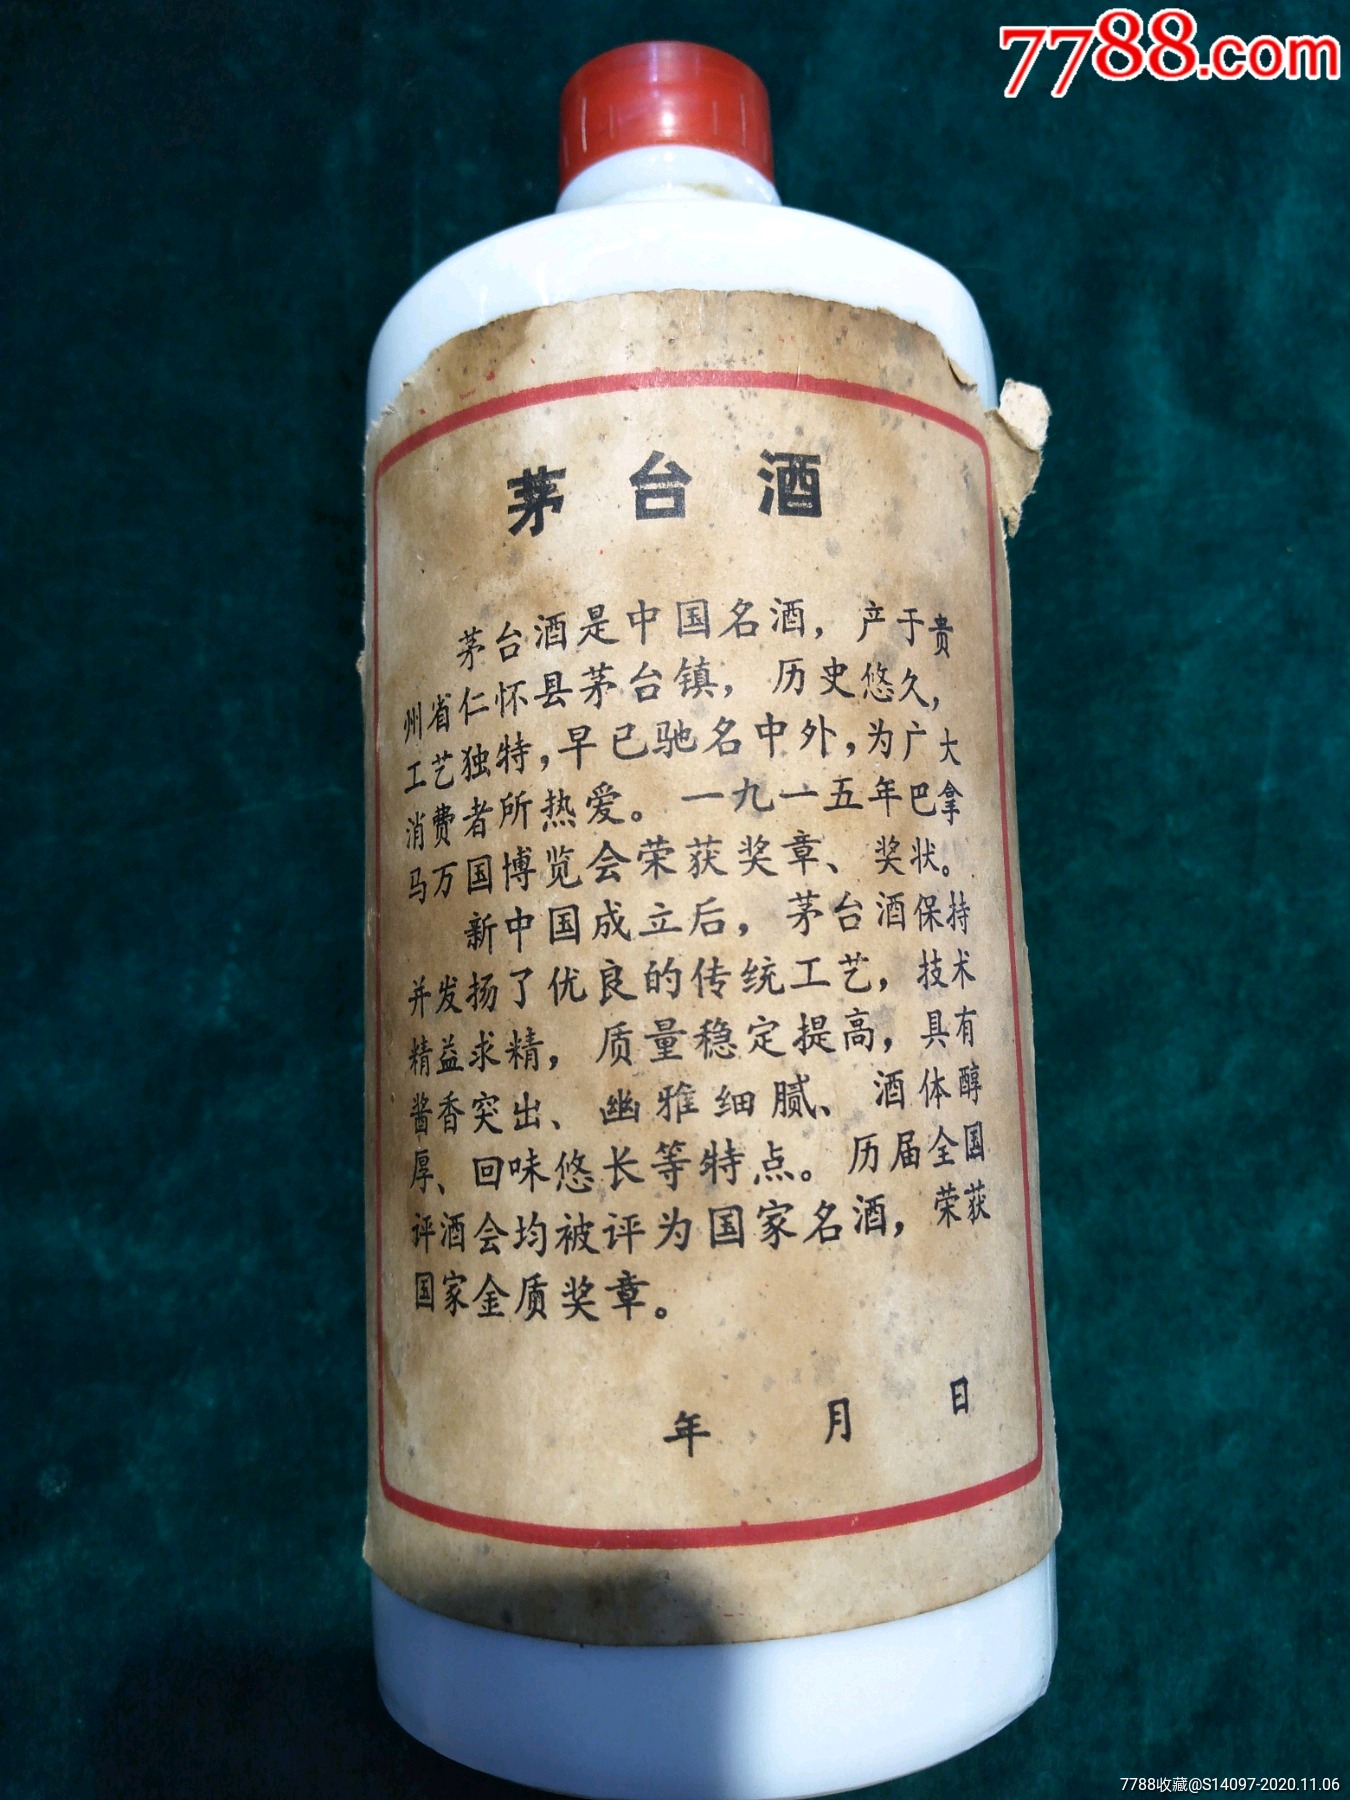 7788.com
茅台酒
茅台酒是中国名酒，产于贵
州省仁怀县茅台镇，历史悠久，
工艺独特，早已驰名中外，为广大
消费者所热爱。一九一五年巴拿
马万国博览会荣获奖章、奖状。
新中国成立后，茅台酒保持
并发扬了优良的传统工艺，技术
精益求精，质量稳定提高，具有
酱香突出、幽雅细腻、酒体醇
厚、回味悠长等特点。历届全国
评酒会均被评为国家名酒，荣获
国家金质奖章。
年 月 日
7788收藏@S14097-2020.11.06